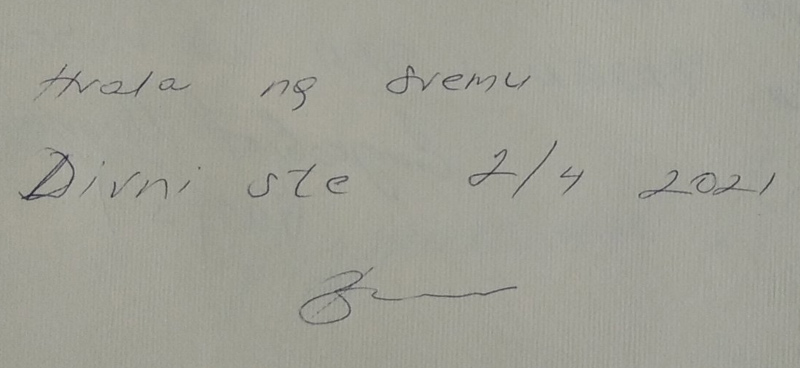 Hvala na svemu
Divni ste 2/4 2021